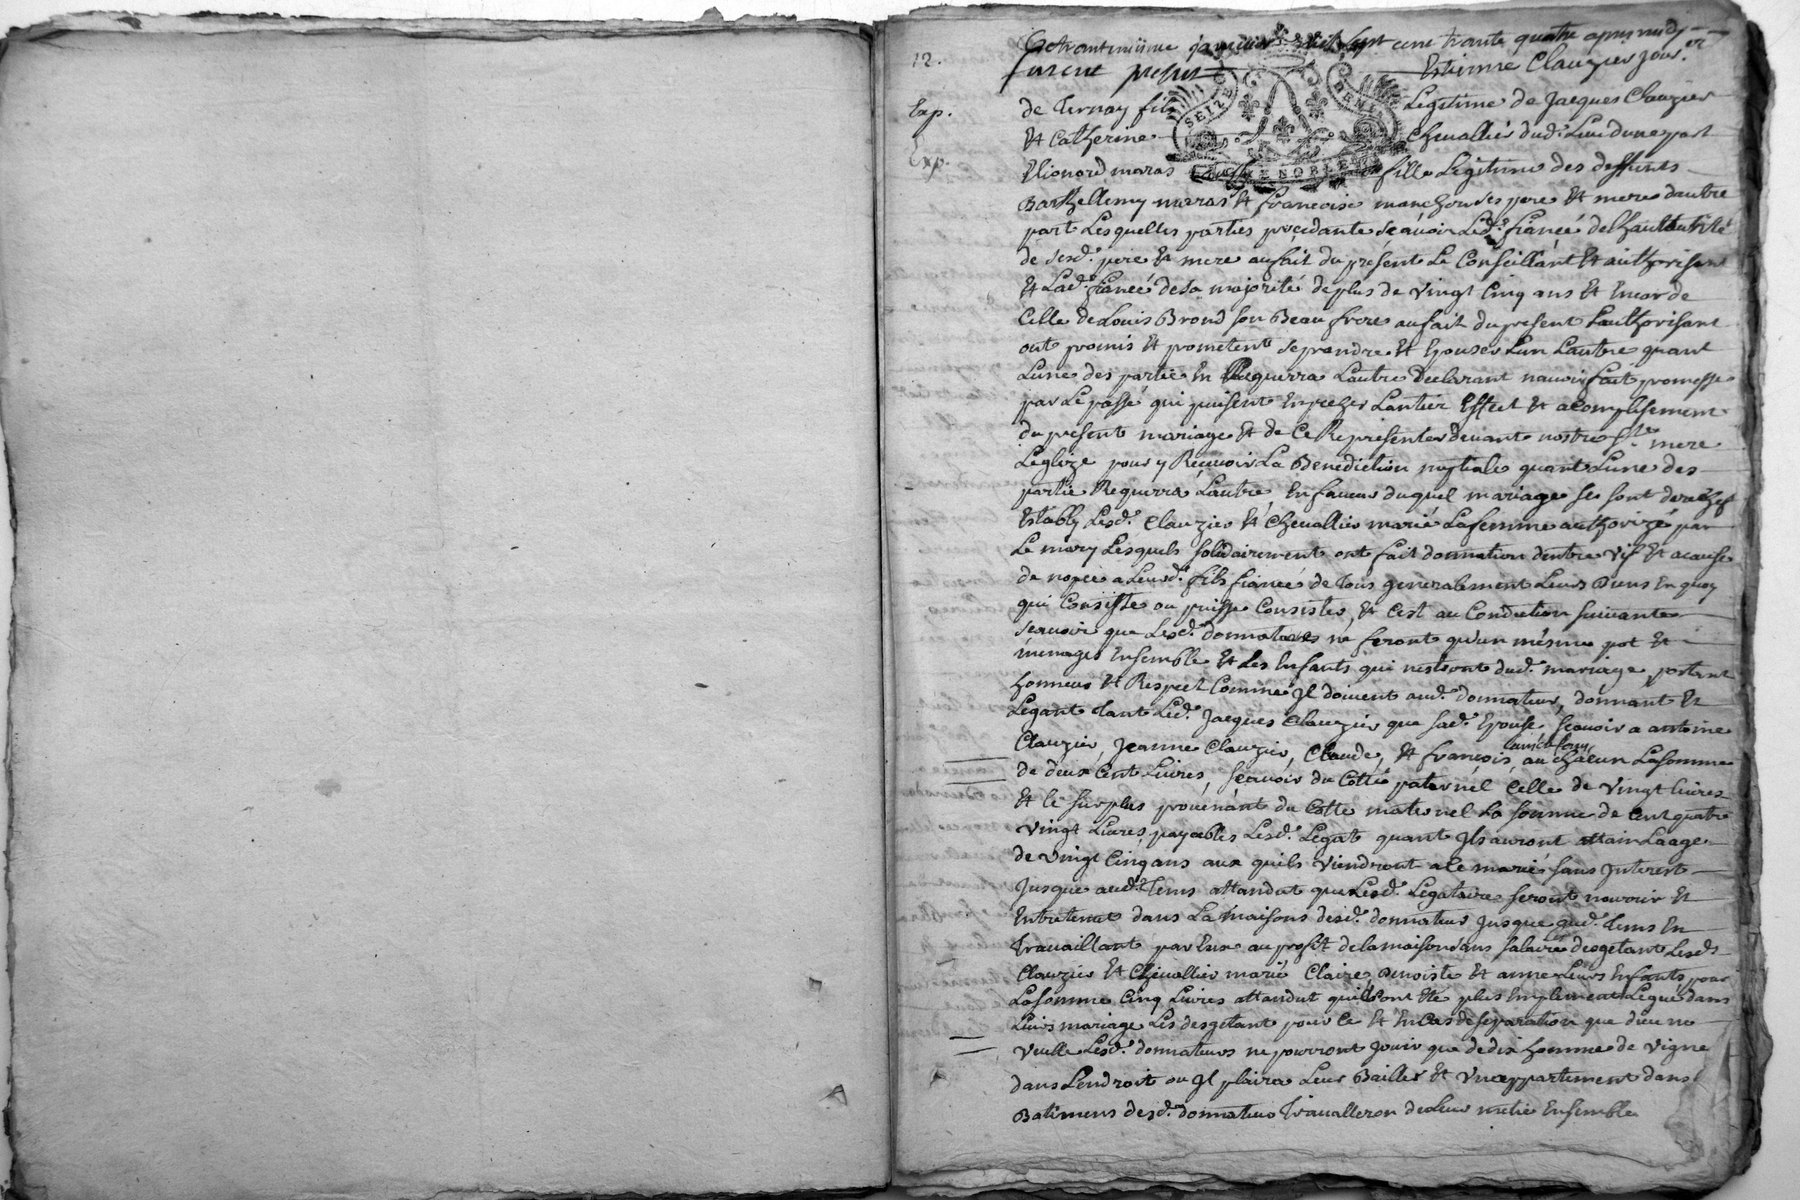 12.
Ce trantmiime janvier mil sept cent trante quatre apres midy
furent presest Estienne Clauzier jour.er
Exp.
de Ternay fils Legitime de Jacques Clauzier
SEIZE DENI
& Catherine Chevallier dud. Lieu dune part
Exp.
Elionord maras fille Legitime des deffunts
NOBLE
Barthellemy maras & francoise manchon ses pere & mere dautre
part Lesquelles parties procedante scavoir Led. fiancé de Lhauthorité
de sesd. pere & mere au fait du présent Le Conseillant & authorisant
& Lad. fiancé de sa majorité de plus de vingt Cinq ans & Encor de
Celle de Louis Brond son Beau frere au fait du present Lauthorisant
ont promis & prometent se prendre & Epouser Lun Lautre quant
Lune des partie En Requerra Lautre Declarant navoir fait promesse
par Le passé qui puisent Enpecher Lantier Effect & acomplisement
du present mariage & de Ce Representer devant nostre Ste mere
Leglize pour y Recevoir La Benediction nuptiale quant Lune des
partie Requerra Lautre En faveur duquel mariage se sont derechef
Establÿ Lesd. Clauzier & Chevallier marié La femme authorizé par
Le mary Lesquels solidairement ont fait donnation dentre vif & a cause
de nopce a Leurd. fils fiancé de Tous generalement Leurs Biens En quoy
qui Consiste ou puisse Consister, & Cest au Condition suivante
scavoir que Lesd. donnataires ne feront qu'un mésme pot &
menages Ensemble & Les Enfants qui nestront dud. mariage portant
honneur & Respect Comme Il doivent aud. donnateur, donnant &
Legant Tant Led. Jacques Clauzier que sad. Epouse scavoir a antoine
Clauzier, Jeanne Clauzier, Claude, & francois, au chacun La somme
de deux Cent Livres, scavoir du Cotté paternel Celle de vingt livres
& le surplus provenant du Cotte maternel La somme de Cent quatre
vingt Livres payables Lesd. Legat quant Ils auront attain Laage
de vingt Cinq ans aux quils viendront a le marié sans Interest
Jusque aud. Tems attandut que Lesd. Legataire seront nourrir &
Entretenut dans La maisons desd. donnateur Jusque aud. Tems En
Travaillant par Eux au profit de la maison sans salaire desgetant Lesds
Clauzier & Chevallier marié Claire Benoiste & anne Leurs Enfants pour
La somme Cinq Livres attandut quils ont Eté plus Emplement Legué dans
Leurs mariage Les desgetant pour Ce & En Cas de separation que dieu ne
veulle Lesd. donnateurs ne pourront Jouir que de dix homme de vigne
dans Lendroit ou Il plaira Leur Bailler & Un appartement dans
Batimens desd. donnateur Travalleron de Leur metié Ensemble